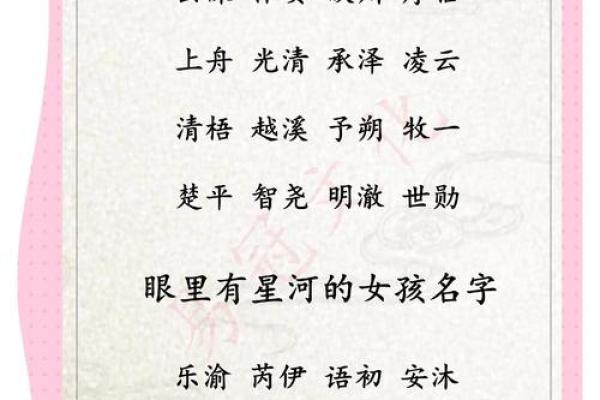 上舟 光清 承泽 凌云
清梧 越溪 予朔 牧一
楚平 智尧 明澈 世勋
眼里有星河的女孩名字
乐渝 芮伊 语初 安沐